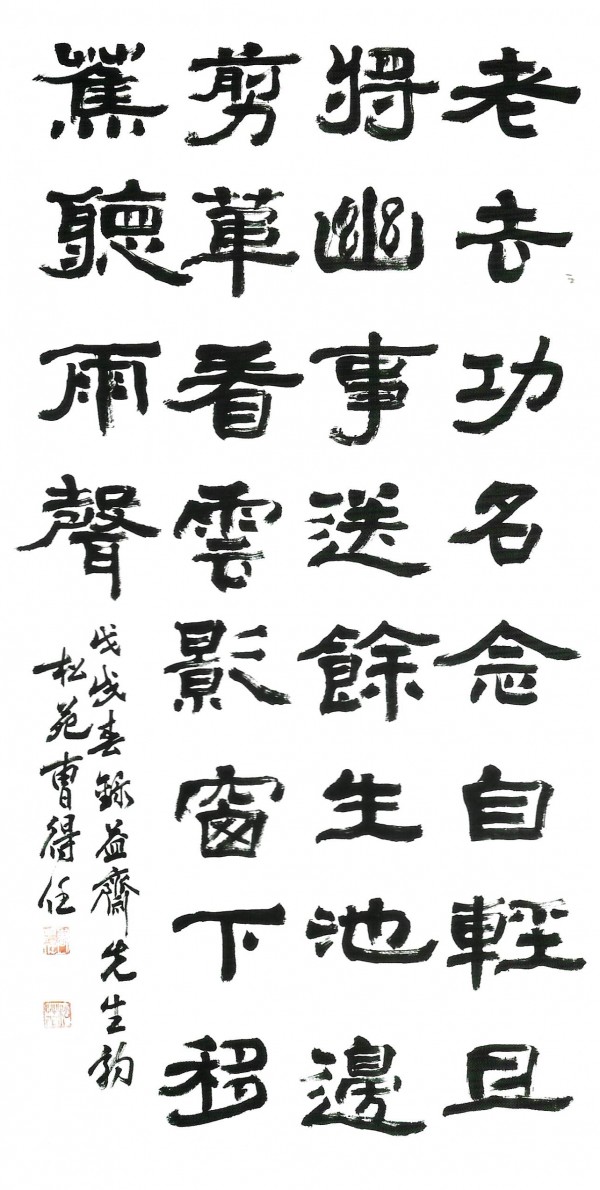 老去功名念自輕且
將幽事送餘生池邊
剪草看雲影窗下移
蕉聽雨聲
戊戌春錄益齋先生韵
松苑曹得任